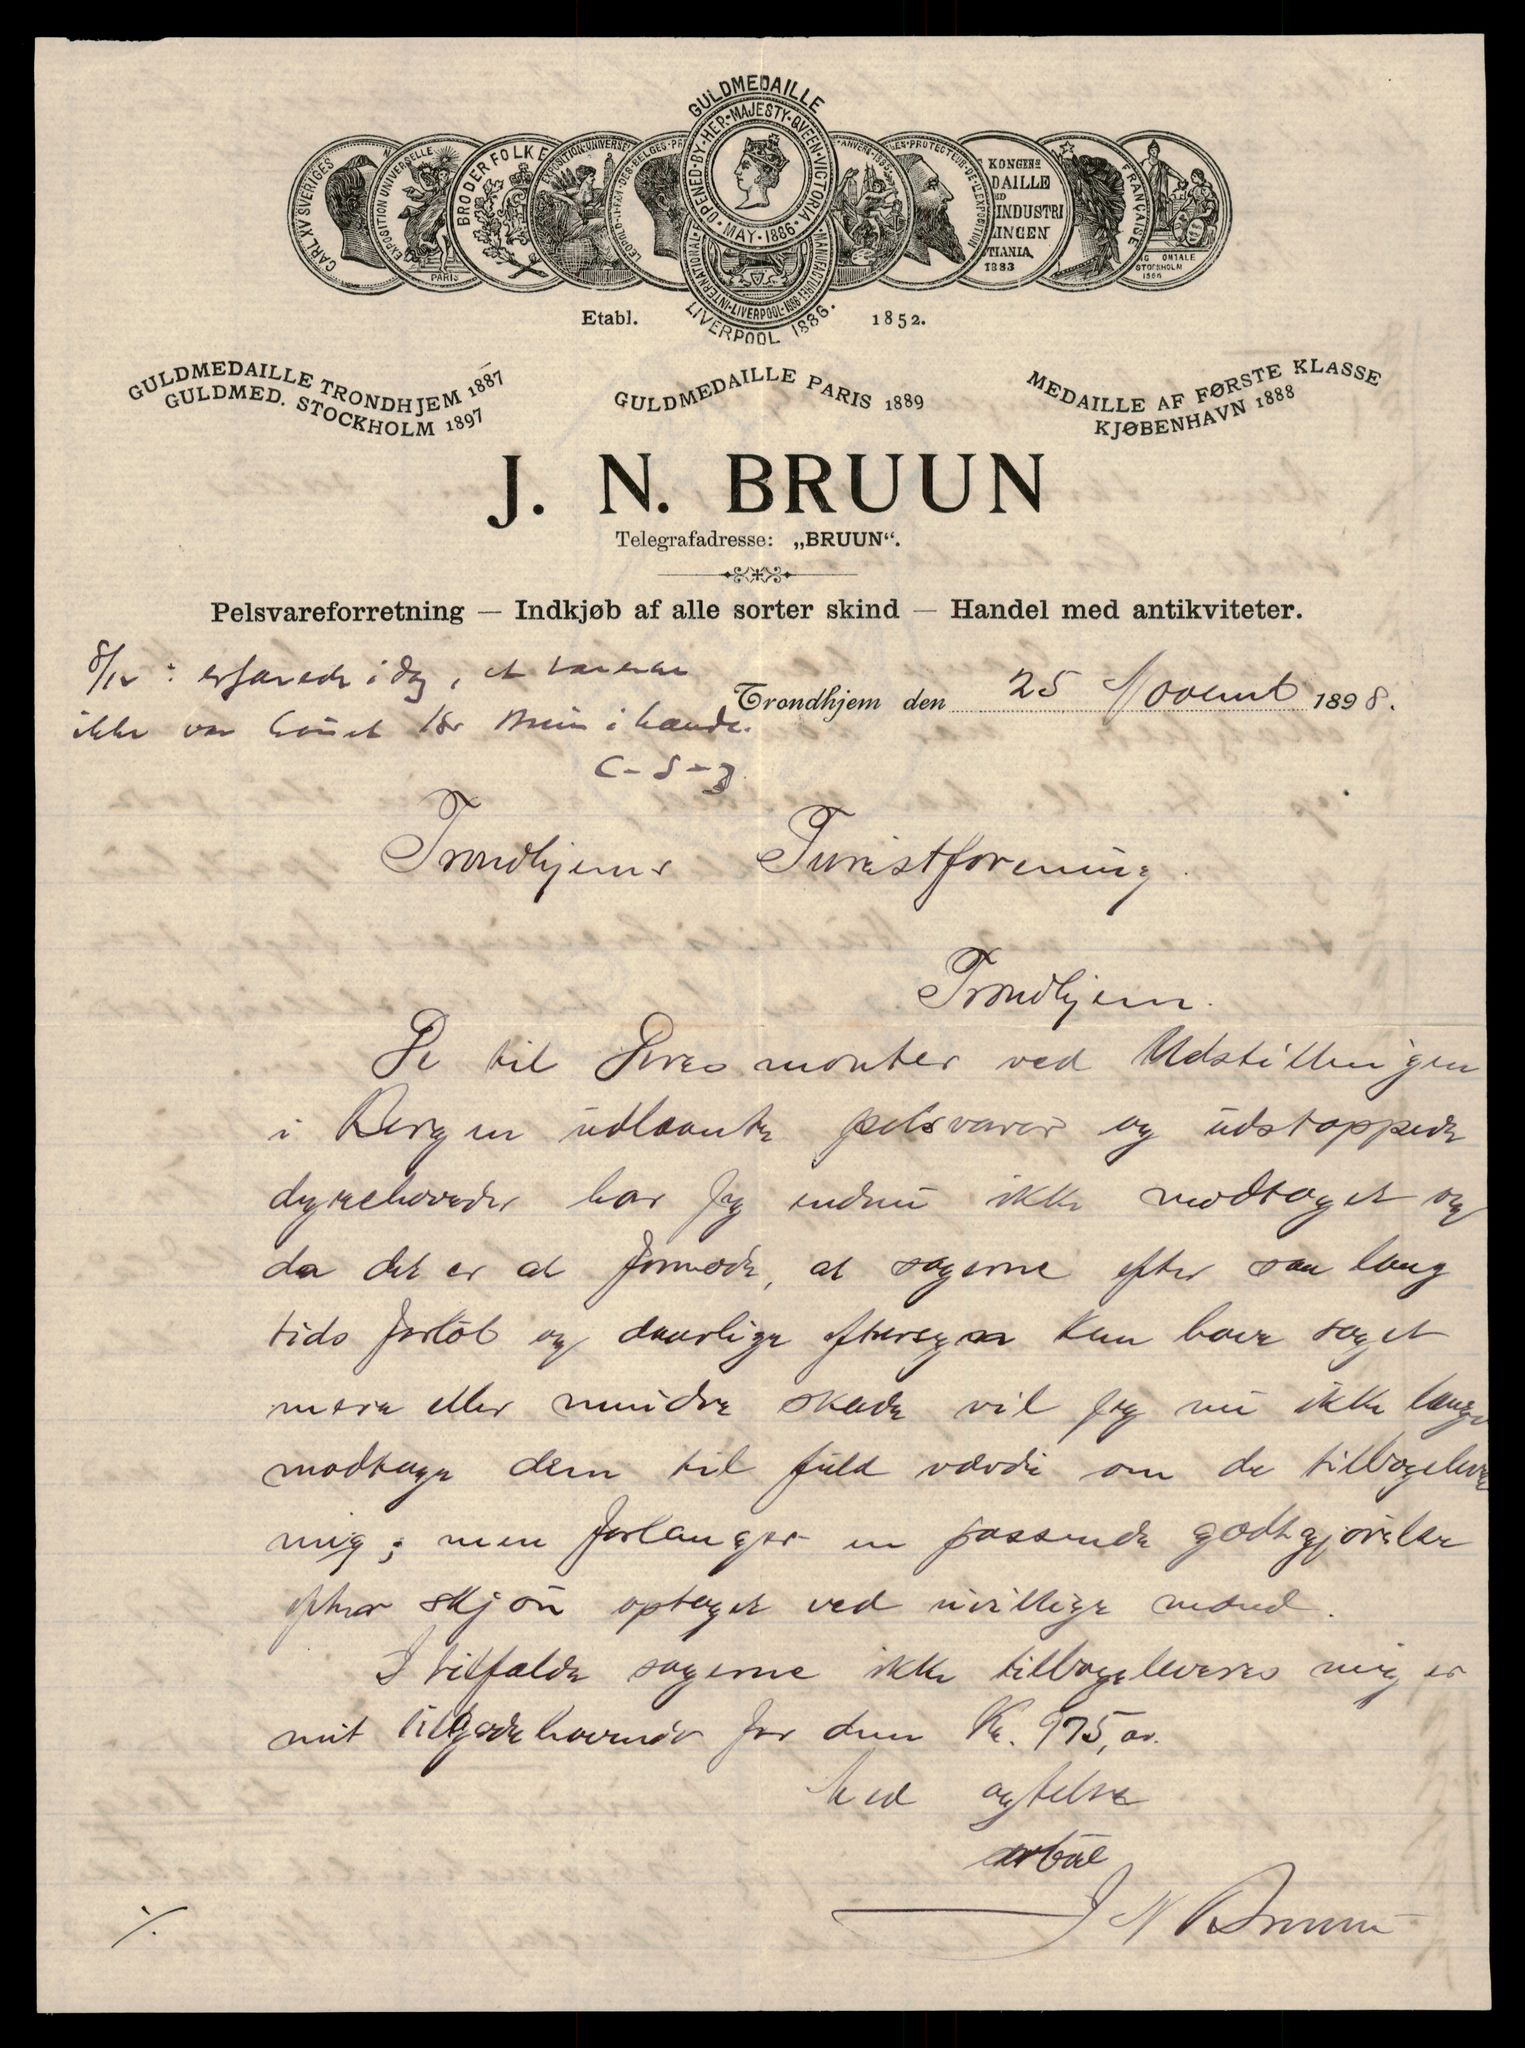 GULDMEDAILLE
CARL XV SVERIGES
EXPOSITION UNIVERSELLE
PARIS
BRODERFOLKE
EXPOSITION UNIVERSE
OPENED·BY·HER·MAJESTY·QVEEN·VICTORIA
·MAY·1886·
INTERNATIONAL
LIVERPOOL·1886
LIVERPOOL 1886.
PROTECTEUR·DE·L'EXPOSITION
KONGENS
DAILLE
INDUSTRI
LINGEN
TIANIA
1883
FRANÇAISE
STOCKHOLM
1866
Etabl. 1852.
GULDMEDAILLE TRONDHJEM 1887
GULDMED. STOCKHOLM 1897
GULDMEDAILLE PARIS 1889
MEDAILLE AF FØRSTE KLASSE
KJØBENHAVN 1888
J. N. BRUUN
Telegrafadresse: „BRUUN“.
Pelsvareforretning — Indkjøb af alle sorter skind — Handel med antikviteter.
8/12: erfarede i dag, at varerne
ikke var Bruun i hænde.
Trondhjem den 25 Novembr 1898.
Trondhjems Turistforening.
Trondhjem.
De til Deres monter ved Udstillingen
i Bergen udlaante pelsvarer og udstoppede
dyrehoveder har jeg endnu ikke modtaget og
da det er at formode, at sagerne efter saa lang
tids forløb og daarlige eftersyn kan have taget
mere eller mindre skade vil jeg nu ikke længer
modtage dem til fuld værdi om de tilbageleveres
mig; men forlanger en passende godtgjørelse
efter skjøn optaget ved uvillige mænd.
I tilfælde sagerne ikke tilbageleveres mig er
mit tilgodehavende for dem Kr. 975,00.
Med agtelse
ærbø
J N Bruun
./.